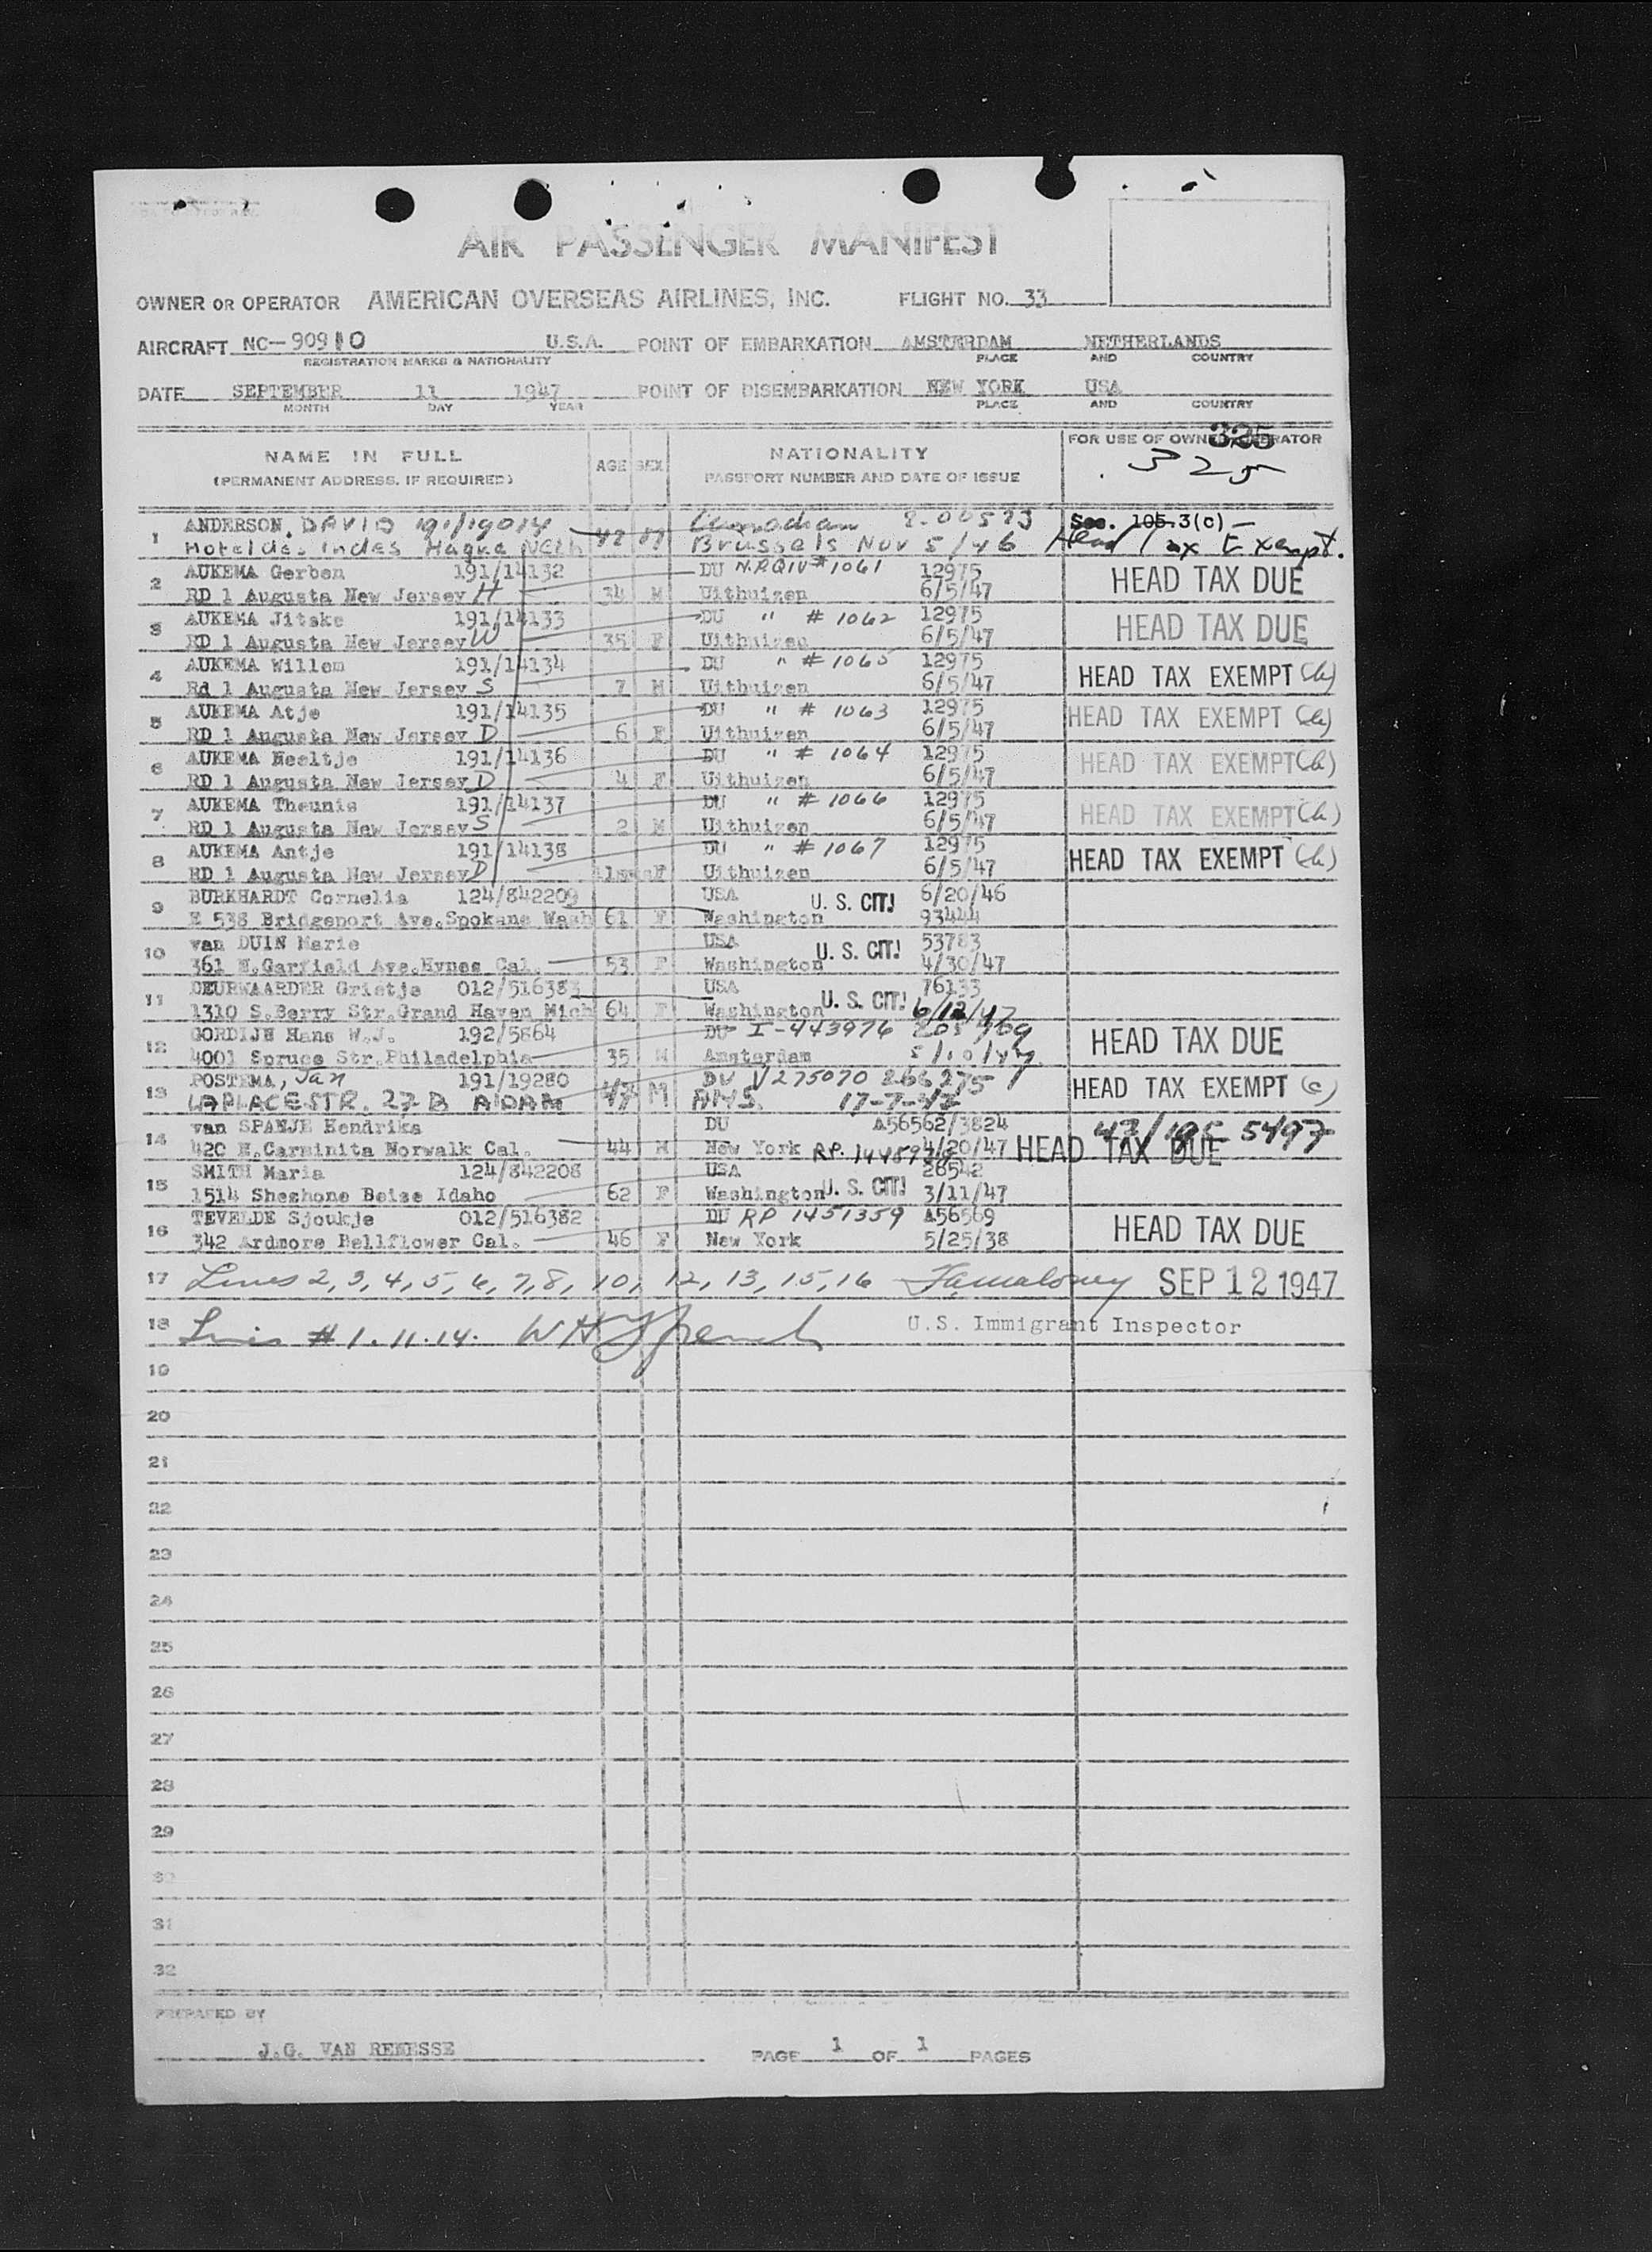 AIR PASSENGER MANIFEST
OWNER OR OPERATOR AMERICAN OVERSEAS AIRLINES, INC. FLIGHT NO. 33
AIRCRAFT NC-90910 U.S.A. POINT OF EMBARKATION AMSTERDAM NETHERLANDS
REGISTRATION MARKS & NATIONALITY PLACE AND COUNTRY
DATE SEPTEMBER 11 1947 POINT OF DISEMBARKATION NEW YORK USA
MONTH DAY YEAR PLACE AND COUNTRY
NAME IN FULL AGE SEX NATIONALITY FOR USE OF OWNER OPERATOR 325
(PERMANENT ADDRESS, IF REQUIRED) PASSPORT NUMBER AND DATE OF ISSUE 325
1 ANDERSON, DAVID 191/19014 Canadian 2-00573 Sec. 105.3(c) —
Hotel des Indes Hague Neth 42 M Brussels Nov 5/46 Head Tax Exempt.
2 AUKEMA Gerben 191/14132 DU N.P.QIV # 1061 12975 HEAD TAX DUE
RD 1 Augusta New Jersey H 34 M Uithuizen 6/5/47
3 AUKEMA Jitske 191/14133 DU " # 1062 12975 HEAD TAX DUE
RD 1 Augusta New Jersey W 35 F Uithuizen 6/5/47
4 AUKEMA Willem 191/14134 DU " # 1065 12975 HEAD TAX EXEMPT (a)
Rd 1 Augusta New Jersey S 7 M Uithuizen 6/5/47
5 AUKEMA Atje 191/14135 DU " # 1063 12975 HEAD TAX EXEMPT (a)
RD 1 Augusta New Jersey D 6 F Uithuizen 6/5/47
6 AUKEMA Neeltje 191/14136 DU " # 1064 12975 HEAD TAX EXEMPT (a)
RD 1 Augusta New Jersey D 4 F Uithuizen 6/5/47
7 AUKEMA Theunis 191/14137 DU " # 1066 12975 HEAD TAX EXEMPT (a)
RD 1 Augusta New Jersey S 2 M Uithuizen 6/5/47
8 AUKEMA Antje 191/14138 DU " # 1067 12975 HEAD TAX EXEMPT (a)
RD 1 Augusta New Jersey D F Uithuizen 6/5/47
9 BURKHARDT Cornelia 124/842209 USA U. S. CIT! 6/20/46
E 538 Bridgeport Ave.Spokane Wash 61 F Washington 93444
10 van DUIN Marie USA U. S. CIT! 53783
361 N.Garfield Ave.Hynes Cal. 53 F Washington 4/30/47
11 DEURWAARDER Grietje 012/516383 USA U. S. CIT! 76133
1310 S.Berry Str.Grand Haven Mich 64 F Washington 6/12/47
12 GORDIJN Hans W.J. 192/5864 DU I-443976 HEAD TAX DUE
4001 Spruce Str.Philadelphia 35 M Amsterdam 5/10/47
13 POSTEMA, Jan 191/19280 DU V275070 266275 HEAD TAX EXEMPT (c)
LAPLACESTR. 27 B A'DAM 47 M AMS. 17-7-47
14 van SPANJE Hendrika DU A56562/3824 5497
420 N.Carminita Norwalk Cal. 44 M New York RP. 4/20/47 HEAD TAX DUE
15 SMITH Maria 124/842208 USA U. S. CIT! 28542
1514 Sheshone Boise Idaho 62 F Washington 3/11/47
16 TEVELDE Sjoukje 012/516382 DU RP 1451359 A56569 HEAD TAX DUE
342 Ardmore Bellflower Cal. 46 F New York 5/25/38
17 Lines 2, 3, 4, 5, 6, 7, 8, 10, 12, 13, 15, 16 SEP 12 1947
18 Lines # 1. 11. 14. U.S. Immigrant Inspector
19
20
21
22
23
24
25
26
27
28
29
30
31
32
PREPARED BY
J.G. VAN RENESSE PAGE 1 OF 1 PAGES